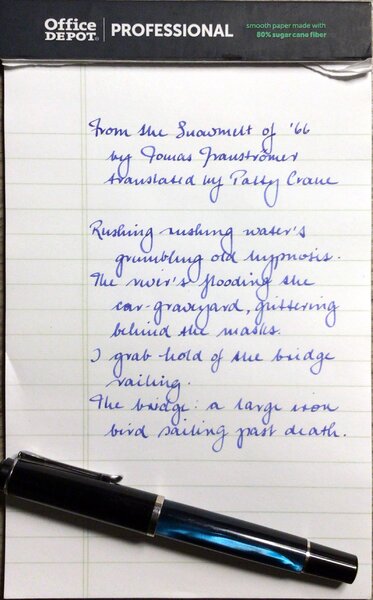 Office DEPOT | PROFESSIONAL
smooth paper made with
80% sugar cane fiber
From the Snowmelt of '66
by Tomas Tranströmer
translated by Patty Crane
Rushing rushing water's
grumbling old hypnosis.
The river's flooding the
car-graveyard, glittering
behind the masks.
I grab hold of the bridge
railing.
The bridge: a large iron
bird sailing past death.